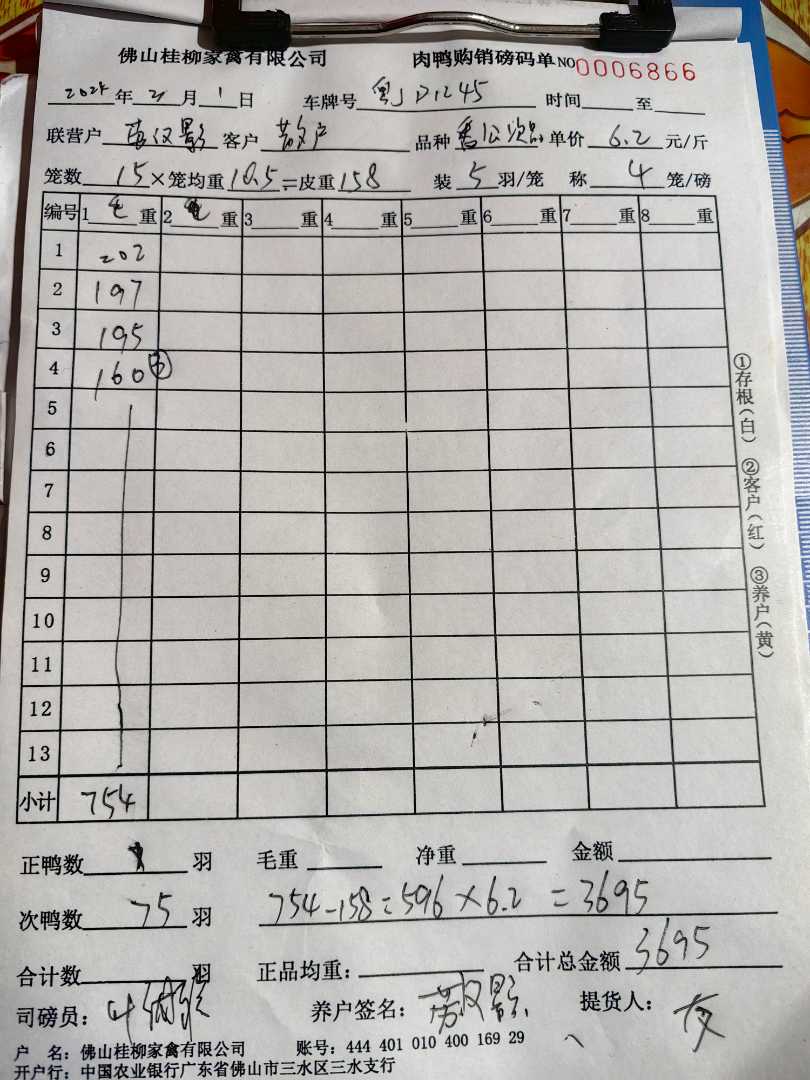 佛山桂柳家禽有限公司 肉鸭购销磅码单 NO 0006866
2024年 2月 1日 车牌号 粤J D1245 时间 至
联营户 客户 散户 品种 单价 6.2 元/斤
笼数 15 ×笼均重 10.5 =皮重 158 装 5 羽/笼 称 4 笼/磅
编号 1 毛 重 2 毛 重 3 重 4 重 5 重 6 重 7 重 8 重
1 202
2 197
3 195
4 160 ③
5
6
7
8
9
10
11
12
13
小计 754
正鸭数 羽 毛重 净重 金额
次鸭数 75 羽 754-158=596×6.2=3695
合计数 羽 正品均重: 合计总金额 3695
司磅员: 养户签名: 提货人:
户 名: 佛山桂柳家禽有限公司 账号: 444 401 010 400 169 29
开户行: 中国农业银行广东省佛山市三水区三水支行
①存根(白) ②客户(红) ③养户(黄)